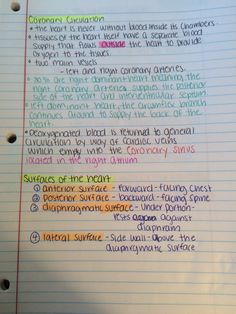 Coronary Circulation
• the heart is never without blood inside its chambers
• tissues of the heart itself have a separate blood
supply that flows outside the heart to provide
oxygen to the tissues.
• two main vessels
- left and right coronary arteries.
are right dominant heart meaning the
right coronary arteries supplies the posterior
side of the heart and interventricular septum
left dominant heart, the circumflex branch
continues around to supply the back of the
heart.
• Deoxygenated blood is returned to general
circulation by way of cardiac veins
which empty into the coronary sinus
located in the right atrium
Surfaces of the heart
① anterior surface - forward-facing chest
② posterior surface - backward-facing spine
③ diaphragmatic surface - under portion-
rests against
diaphragm
④ lateral surface - side wall - above the
diaphragmatic surface